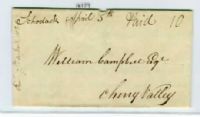 Schodack April 5th Paid 10
William Campbell Esqr
Cherry Valley